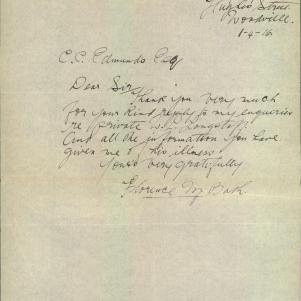 Street
Woodville
1-4-16
C.C. Edmunds Esq
Dear Sir
Thank you very much
for your kind reply to my enquiries
re private
And all the information you have
given me of his illness
Yours very gratefully
Florence